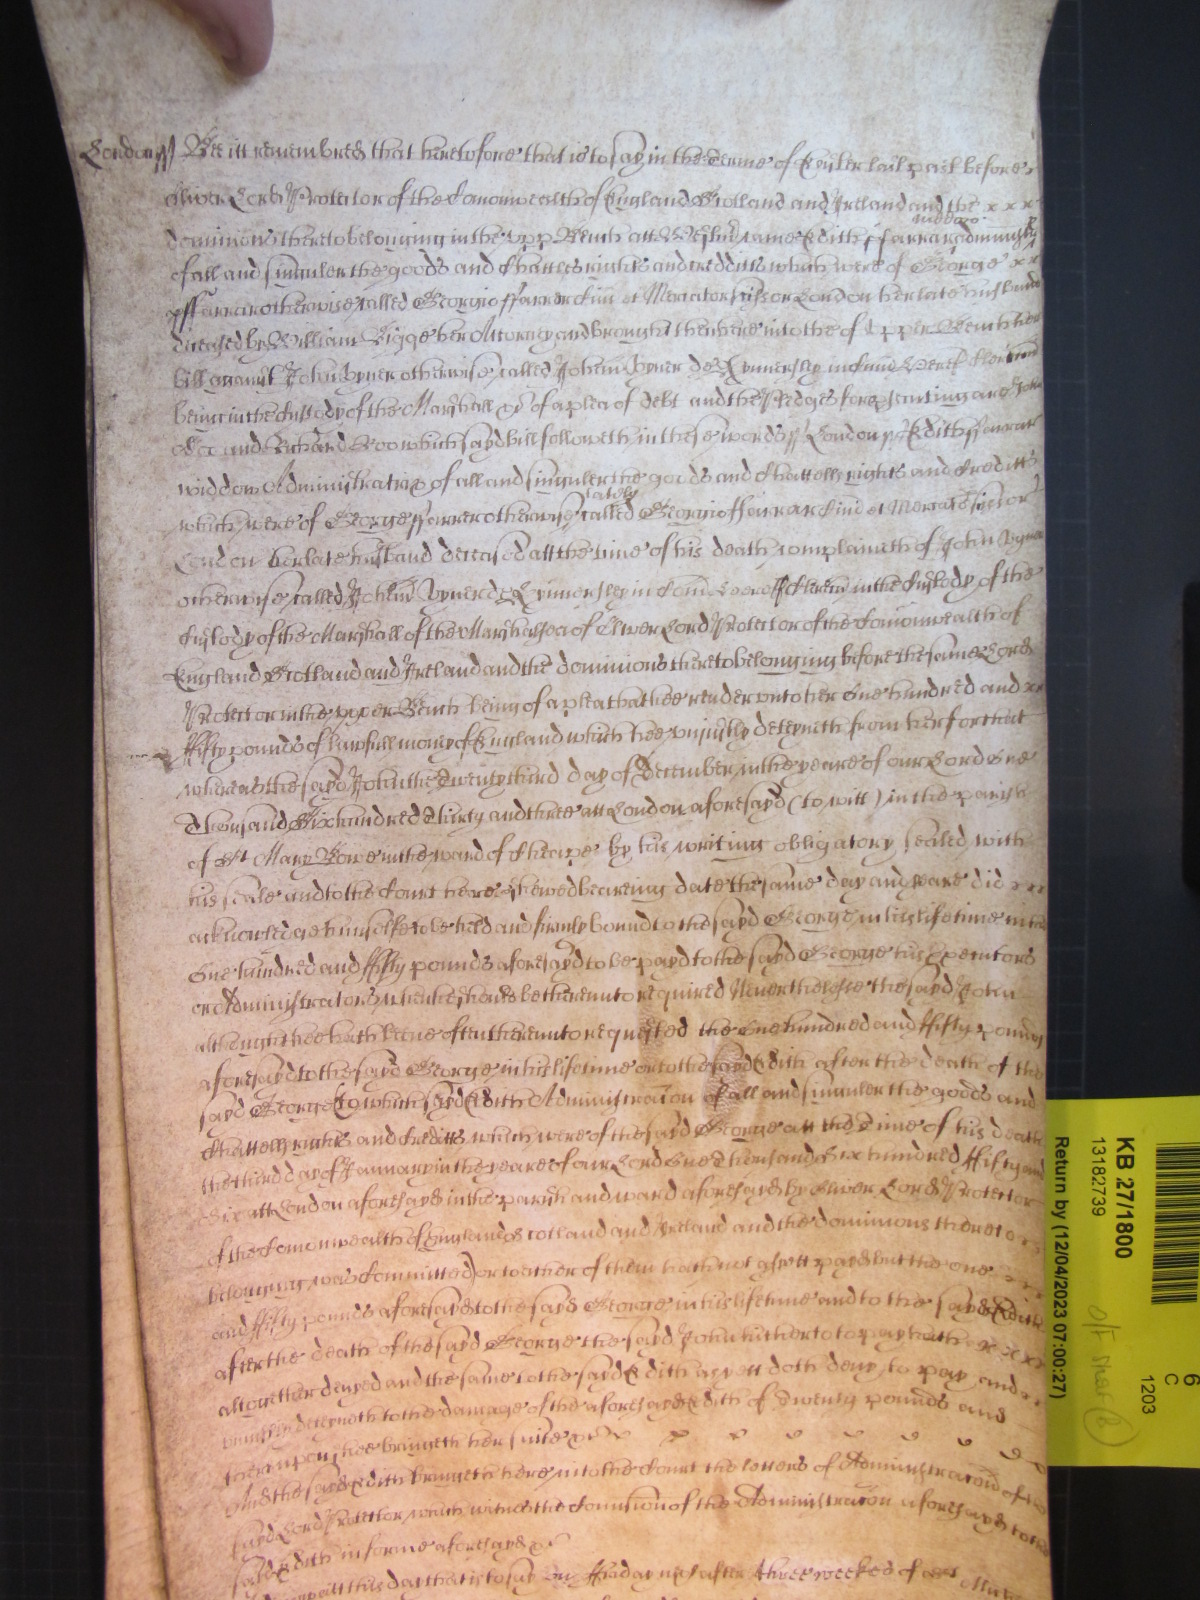 London ss Bee itt remembred that heretofore that is to say in the Terme of Easter last past before
Oliver Lord Protector of the Comonwealth of England Scotland and Ireland and the x x x
widdow
dominions thereto belonging in the upp Bench att Westmr came Edith ffarrar administr
of all and singuler the goods and Chattles rights and credditts which were of George x x
ffarrar otherwise called Georgio ffarrar Civi et Mercator Scissor London her late husband
deceased by William Bigge her Attorney and brought then here into the Court of Upper Bench her
bill against John Byner otherwise called Johem Byner de Kynnersley in Com
being in the Custody of the Marshall &c of a plea of debt and the Pledges for psecuting are John
Doe and Richard Roo which sayd bill followeth in these words ss London ss Edith ffarrar
widdow Administratrix of all and singuler the goods and Chattells rights and Creditts
lately
which were of George ffarrer otherwise called Georgio ffarrar Civi et Mercator Scissor
London her late husband deceased att the time of his death complaineth of John Byner
otherwise called Johem Byner de Kynnersley in Com in the Custody of the
Custody of the Marshall of the Marshalsea of Oliver Lord Protector of the Comonwealth of
England Scotland and Ireland and the dominions thereto belonging before the same Lord
Protector in the upper Bench being of a plea that hee render unto her One hundred and xx
ffifty pounds of lawfull mony of England which hee uniustly deteyneth from her for that
whereas the sayd John the Twenty third day of December in the yeare of our Lord One
Thousand Six hundred Thirty and three att London aforesayd (to witt) in the parish
of St Mary Bowe in the ward of Cheape by his writing obligatory sealed with
his seale and to the Court here shewed beareing date the same day and yeare did x x x
acknowledge himselfe to be held and firmly bound to the sayd George in his life time in the
One hundred and ffifty pounds aforesayd to be payd to the sayd George his Executors
or Administrators when hee should be thereunto required Neverthelesse the sayd John
although hee hath beene often thereunto requested the One hundred and ffifty pounds
aforesayd to the sayd George in his life time or to the sayd Edith after the death of the
sayd George (to which sayd Edith Administracon of all and singuler the goods and
Chattells rights and Creditts which were of the sayd George att the Time of his death
the third day of January in the yeare of our Lord One Thousand Six hundred ffifty and
Six att London aforesayd in the parish and ward aforesayd by Oliver Lord Protector
of the Comonwealth of England Scotland and Ireland and the dominions thereto
belonging was Committed) or to either of them hath not as yett payd but the one
and ffifty pounds aforesayd to the sayd George in his life time and to the sayd Edith
after the death of the sayd George the sayd John hitherto to pay hath x x x x
altogether denyed and the same to the sayd Edith as yett doth deny to pay and
uniustly deteyneth to the damage of the aforesayd Edith of Twenty pounds and
thereupon shee bringeth her suite &c
And the sayd Edith bringeth here into the Court the letters of Administracon of the
sayd Lord Protector which witnes the Comission of the Administracon aforesayd to the
sayd Edith in forme aforesayd &c
att this day that is to say on ffriday next after three weekes of
KB 27/1800
13182739
Return by (12/04/2023 07:00:27)
6
C
1203